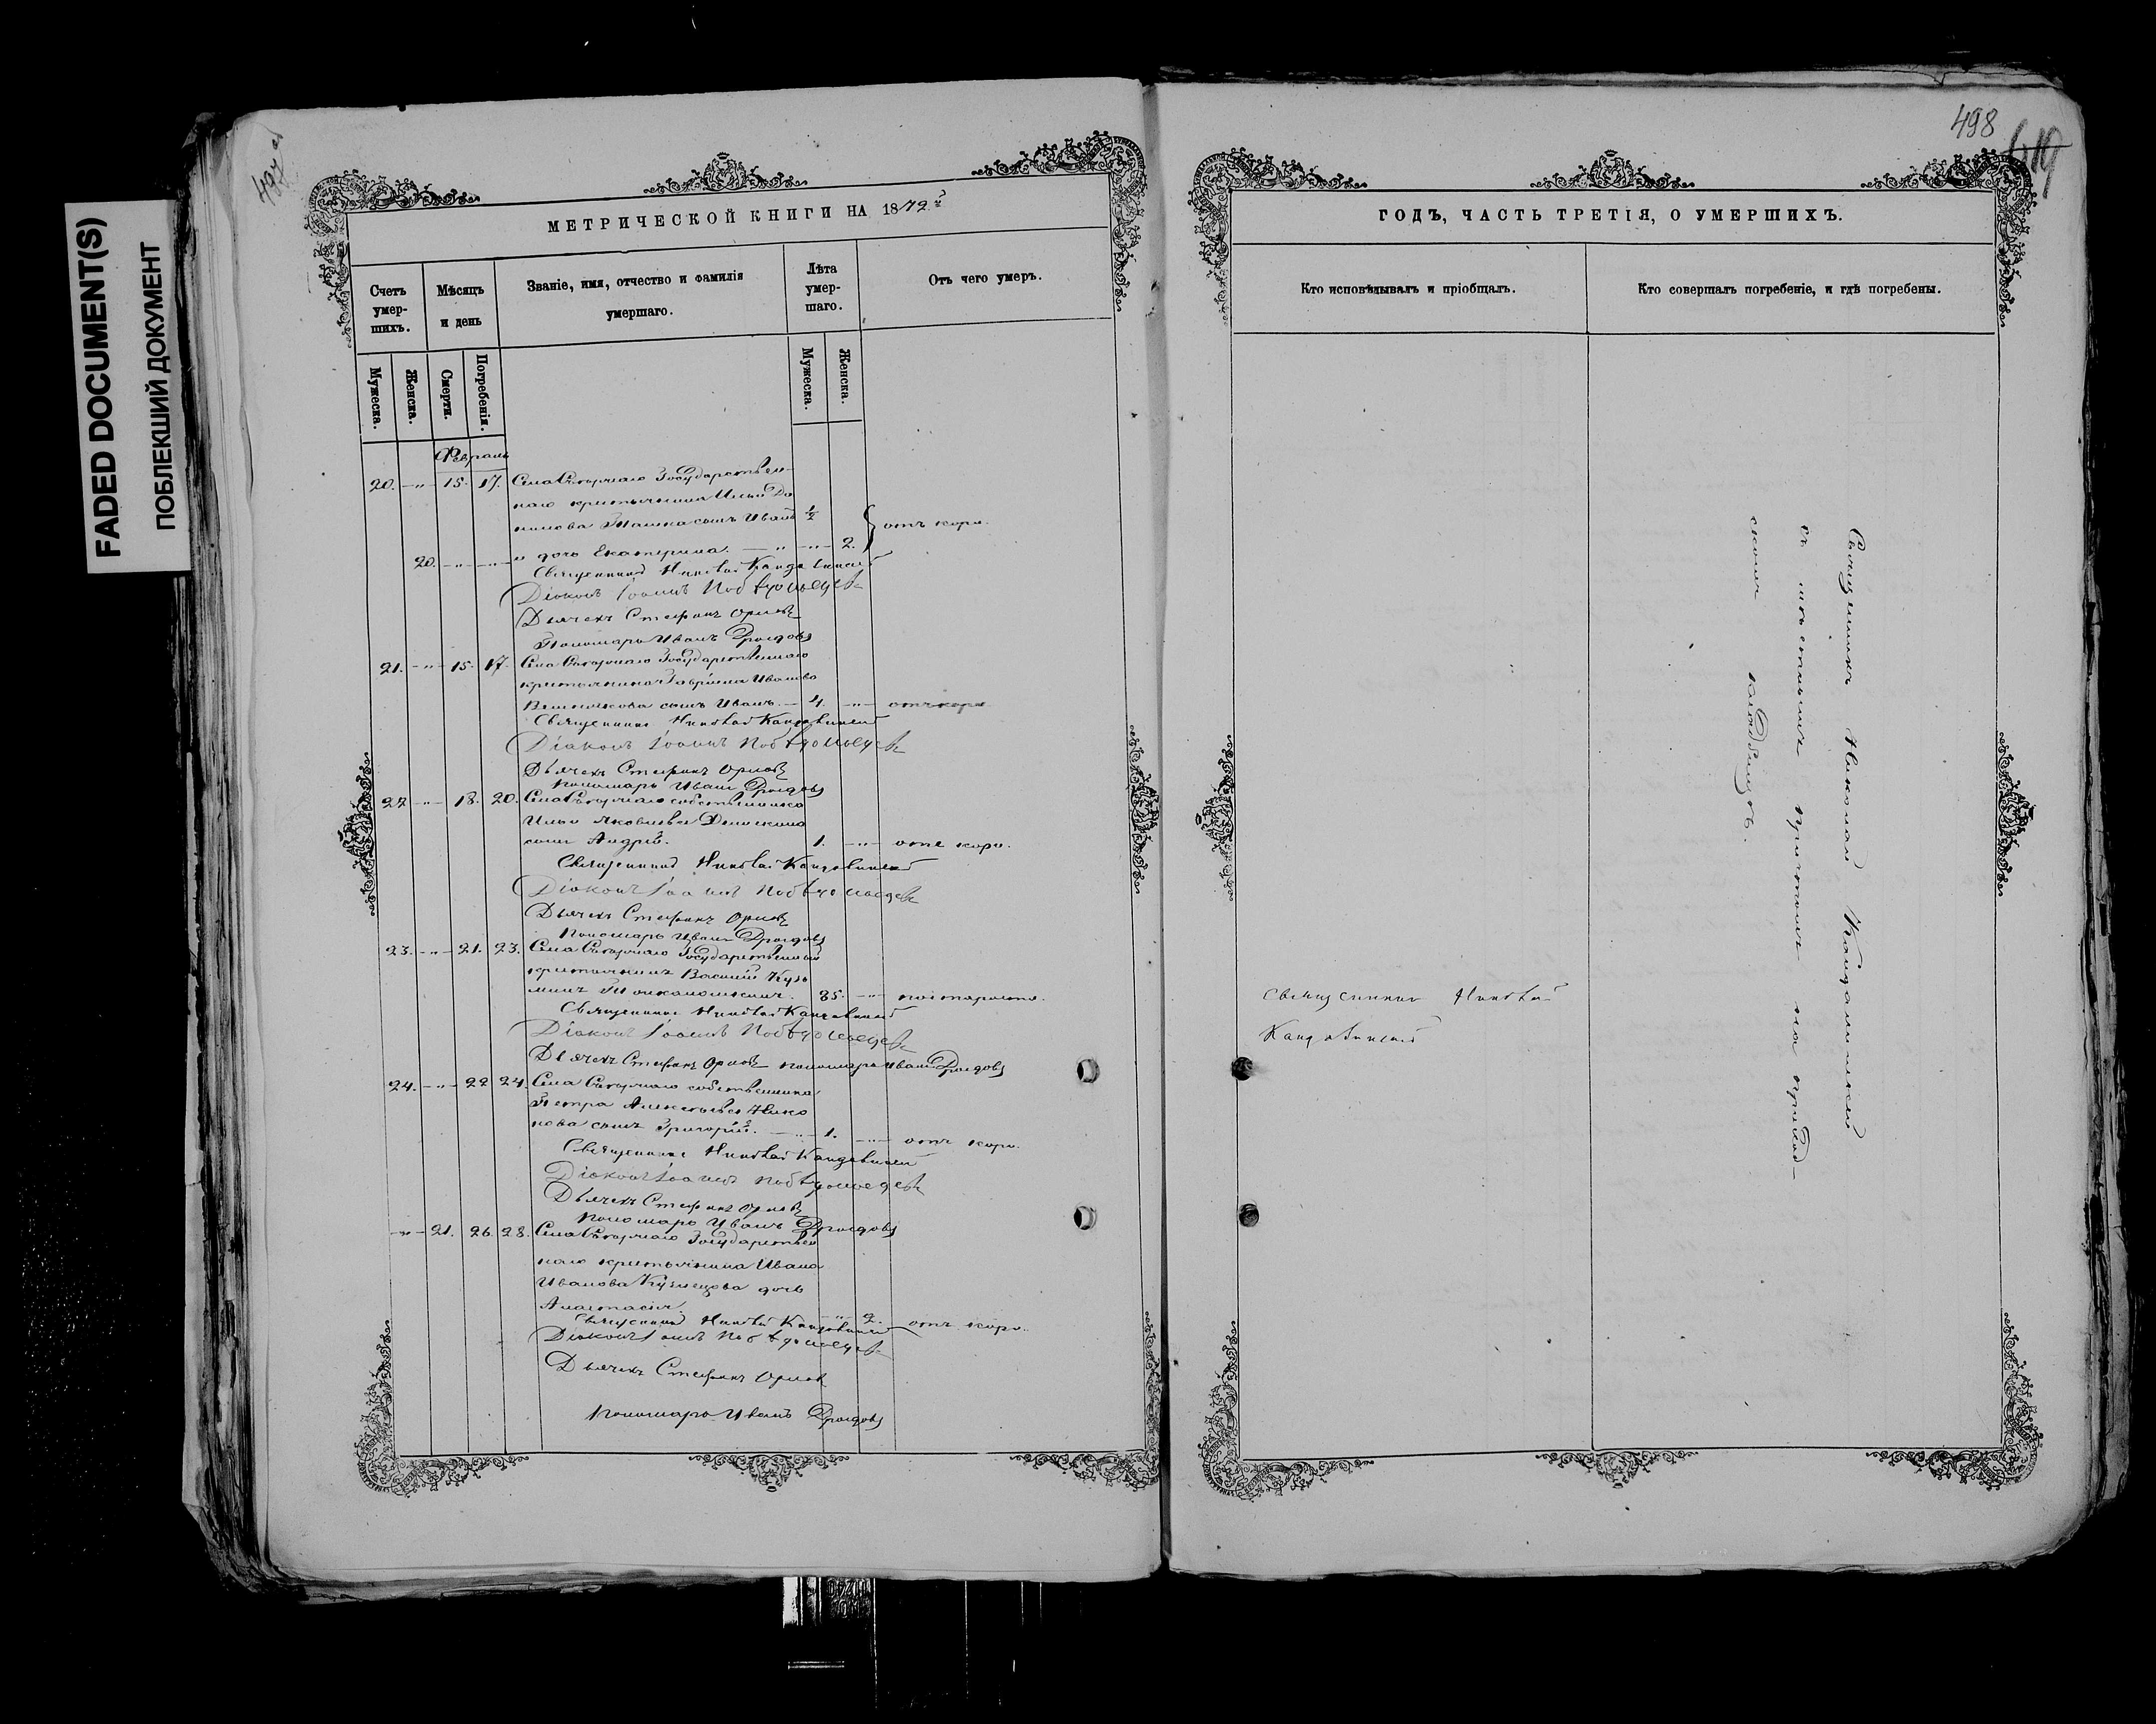 FADED DOCUMENT(S)
ПОБЛЕКШИЙ ДОКУМЕНТ
МЕТРИЧЕСКОЙ КНИГИ НА 1872 г
Счетъ умер-шихъ.
Мѣсяцъ и день
Званіе, имя, отчество и фамилія умершаго.
Лѣта умер-шаго.
Отъ чего умеръ.
Мужеска.
Женска.
Смерти.
Погребенія.
Мужеска.
Женска.
Февраль
20. -"- 15. 17. Села Государствен-
наго крестьянина Ильи Да
нилова сынъ Иванъ ½ отъ кори.
20. -"- -"- " дочь Екатерина. -"- 2.
Священникъ Николай
Діаконъ Іоаннъ Побѣдоносцевъ
Дьячекъ Стефанъ Орловъ
Пономарь Иванъ Дроздовъ
21. -"- 15. 17. Села Государственнаго
крестьянина Гавріила Иванова
сынъ Иванъ. - 4. -"- отъ кори
Священникъ Николай
Діаконъ Іоаннъ Побѣдоносцевъ
Дьячекъ Стефанъ Орловъ
Пономарь Иванъ Дроздовъ
22 -"- 18. 20. Села собственника
Ильи Яковлева
сынъ Андрей. 1. -"- отъ кори.
Священникъ Николай
Діаконъ Іоаннъ Побѣдоносцевъ
Дьячекъ Стефанъ Орловъ
Пономарь Иванъ Дроздовъ
23. -"- 21. 23. Села Государственный
крестьянинъ Василій Кузь
минъ 85. -"- по старости.
Священникъ Николай
Діаконъ Іоаннъ Побѣдоносцевъ
Дьячекъ Стефанъ Орловъ пономарь Иванъ Дроздовъ
24. -"- 22 24. Села собственника
Петра Алексѣева Нико
нова сынъ Григорій. -"- 1. -"- отъ кори.
Священникъ Николай
Діаконъ Іоаннъ Побѣдоносцевъ
Дьячекъ Стефанъ Орловъ
пономарь Иванъ Дроздовъ
-"- 21. 26. 28. Села Государствен
наго крестьянина Ивана
Иванова Кузнецова дочь
Анастасія. " 2. отъ кори.
Священникъ Николай
Діаконъ Іоаннъ Побѣдоносцевъ
Дьячекъ Стефанъ Орловъ
Пономарь Иванъ Дроздовъ
498
ГОДЪ, ЧАСТЬ ТРЕТІЯ, О УМЕРШИХЪ.
Кто исповѣдывалъ и пріобщалъ.
Кто совершалъ погребеніе, и гдѣ погребены.
Священникъ Николай
Священникъ Николай
съ причтомъ на приход-
скомъ кладбищѣ.